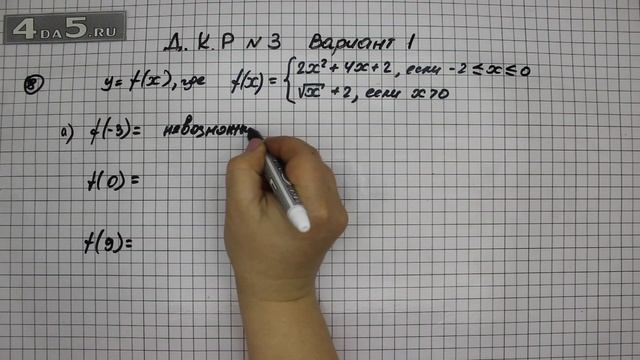 4DA5.RU
Д. К. Р №3 Вариант 1
8 y = f(x), где f(x) = { 2x² + 4x + 2, если -2 ≤ x ≤ 0
√x + 2, если x > 0
а) f(-3) = невозможн
f(0) =
f(9) =